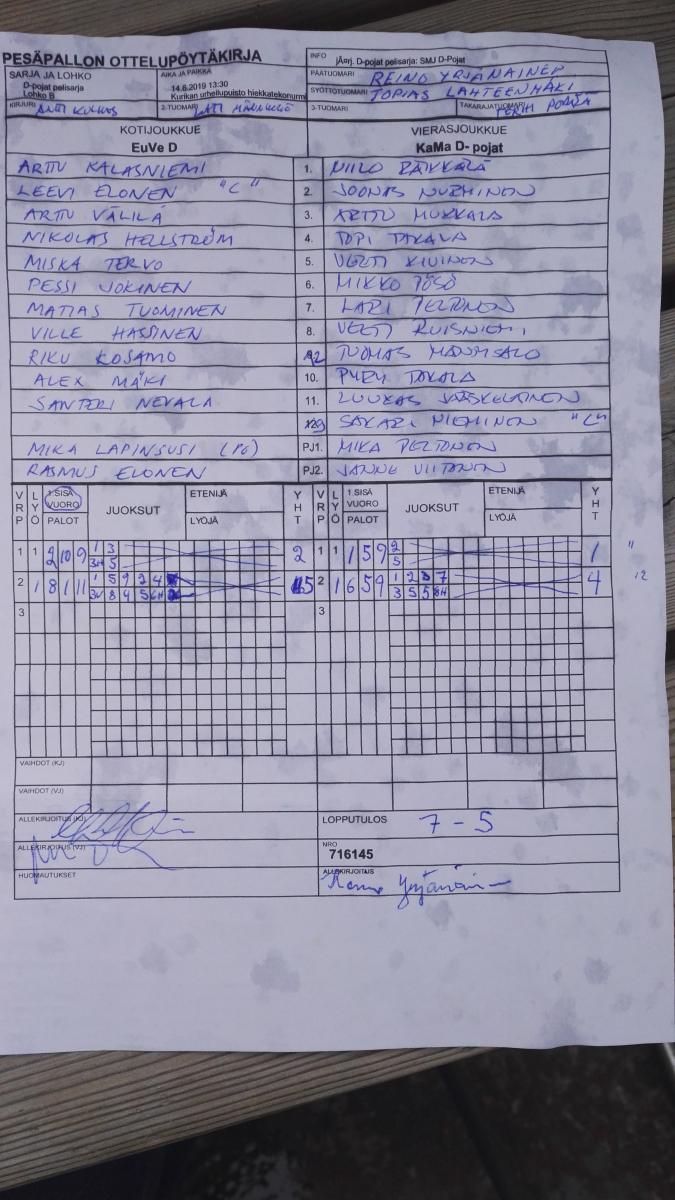 PESÄPALLON OTTELUPÖYTÄKIRJA
INFO jÄrj. D-pojat pelisarja: SMJ D-Pojat
SARJA JA LOHKO
D-pojat pelisarja
Lohko B
AIKA JA PAIKKA
14.6.2019 13:30
Kurikan urheilupuisto hiekkatekonurmi
PÄÄTUOMARI REINO YRJÄNÄINEN
SYÖTTÖTUOMARI TOPIAS LÄHTEENMÄKI
KIRJURI 2-TUOMARI 3-TUOMARI TAKARAJATUOMARI
KOTIJOUKKUE VIERASJOUKKUE
EuVe D KaMa D- pojat
ARTTU KALASNIEMI 1. NIILO
LEEVI ELONEN "C" 2. JOONAS NURMINEN
ARTTU VÄLILÄ 3. ARTTU
NIKOLAS HELLSTRÖM 4. TOPI TAKALA
MISKA TERVO 5. VEETI KIVINEN
PESSI JOKINEN 6. MIKKO
MATIAS TUOMINEN 7. LARI PELTONEN
VILLE HASSINEN 8. VEETI RUISNIEMI
RIKU KOSAMO 12 TUOMAS
ALEX MÄKI 10. TAKALA
SANTERI NEVALA 11. LUUKAS JÄÄSKELÄINEN
SAKARI NIEMINEN "C"
MIKA LAPINSUSI (PG) PJ1. MIKA PELTONEN
RASMUS ELONEN PJ2. JANNE VIITANEN
VRP LYÖ 1.SISÄ VUORO PALOT JUOKSUT ETENIJÄ LYÖJÄ YHT VRP LYÖ 1.SISÄ VUORO PALOT JUOKSUT ETENIJÄ LYÖJÄ YHT
1 1 2 10 9 1 3 2 1 1 1 5 9 2 1
5 5
2 1 8 1 11 1 5 9 2 4 5 2 1 6 5 9 1 2 7 4
8 4 5 3 5 5
3 3
VAIHDOT (KJ)
VAIHDOT (VJ)
ALLEKIRJOITUS (KJ) LOPPUTULOS 7 - 5
ALLEKIRJOITUS (VJ) NRO
716145
HUOMAUTUKSET ALLEKIRJOITUS